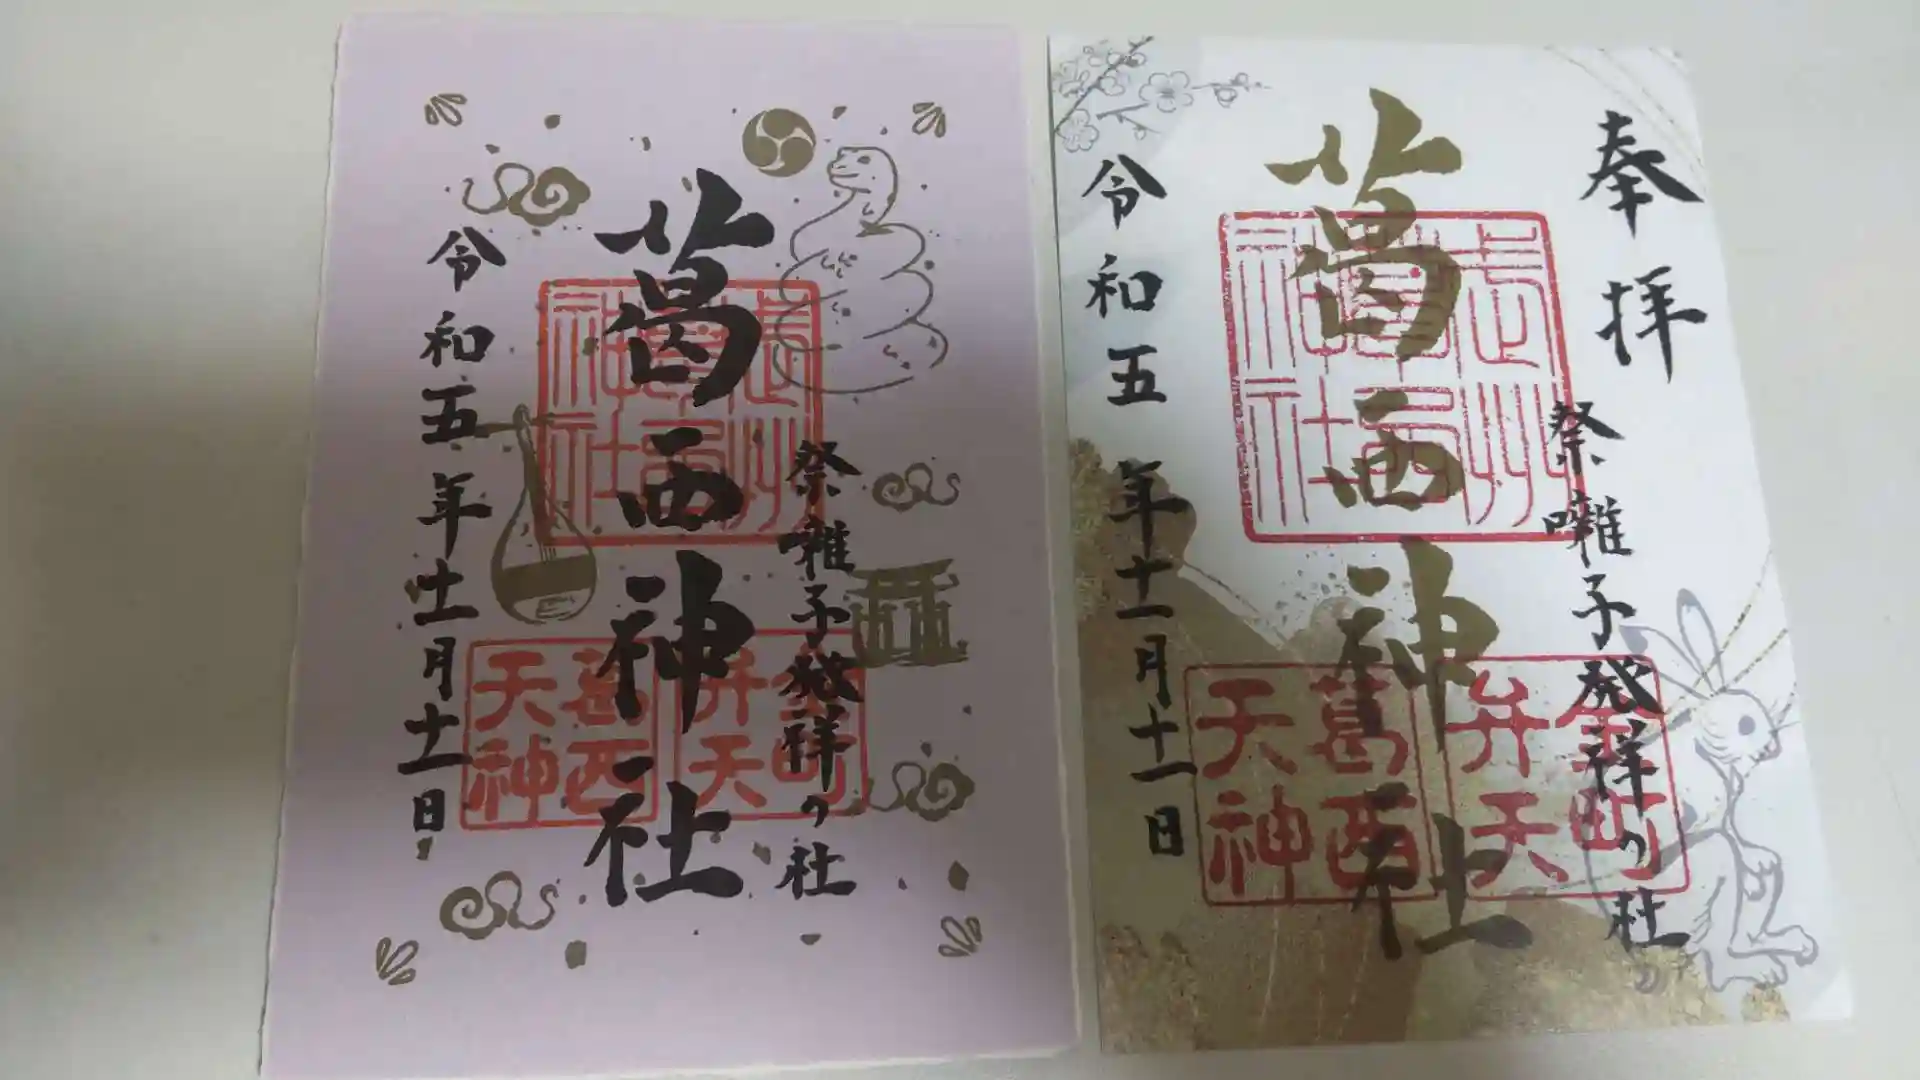 葛西神社
祭囃子発祥の社
令和五年十一月十一日
武州
葛西
神社
金町
弁天
葛西
天神
奉拝
葛西神社
祭囃子発祥の社
令和五年十一月十一日
武州
葛西
神社
金町
弁天
葛西
天神